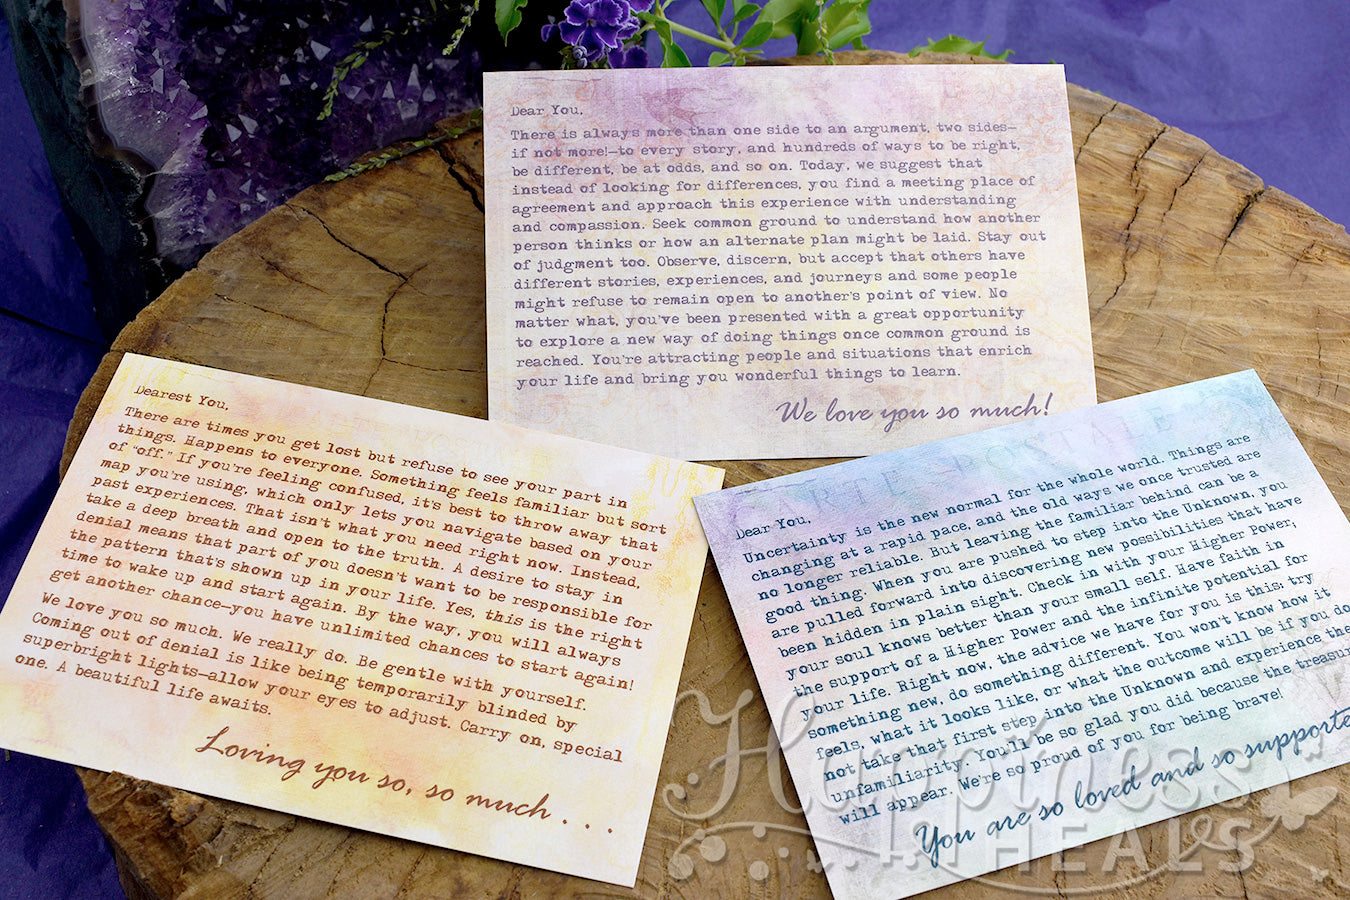 Dear You,
There is always more than one side to an argument, two sides—
if not more!—to every story, and hundreds of ways to be right,
be different, be at odds, and so on. Today, we suggest that
instead of looking for differences, you find a meeting place of
agreement and approach this experience with understanding
and compassion. Seek common ground to understand how another
person thinks or how an alternate plan might be laid. Stay out
of judgment too. Observe, discern, but accept that others have
different stories, experiences, and journeys and some people
might refuse to remain open to another's point of view. No
matter what, you've been presented with a great opportunity
to explore a new way of doing things once common ground is
reached. You're attracting people and situations that enrich
your life and bring you wonderful things to learn.
We love you so much!
Dearest You,
There are times you get lost but refuse to see your part in
things. Happens to everyone. Something feels familiar but sort
of "off." If you're feeling confused, it's best to throw away that
map you're using, which only lets you navigate based on your
past experiences. That isn't what you need right now. Instead,
take a deep breath and open to the truth. A desire to stay in
denial means that part of you doesn't want to be responsible for
the pattern that's shown up in your life. Yes, this is the right
time to wake up and start again. By the way, you will always
get another chance—you have unlimited chances to start again!
We love you so much. We really do. Be gentle with yourself.
Coming out of denial is like being temporarily blinded by
superbright lights—allow your eyes to adjust. Carry on, special
one. A beautiful life awaits.
Loving you so, so much . . .
CARTE POSTALE
Dear You,
Uncertainty is the new normal for the whole world. Things are
changing at a rapid pace, and the old ways we once trusted are
no longer reliable. But leaving the familiar behind can be a
good thing. When you are pushed to step into the Unknown, you
are pulled forward into discovering new possibilities that have
been hidden in plain sight. Check in with your Higher Power;
your soul knows better than your small self. Have faith in
the support of a Higher Power and the infinite potential for
your life. Right now, the advice we have for you is this: try
something new, do something different. You won't know how it
feels, what it looks like, or what the outcome will be if you do
not take that first step into the Unknown and experience the
unfamiliarity. You'll be so glad you did because the treasur
will appear. We're so proud of you for being brave!
You are so loved and so supporte
Happiness
HEALS